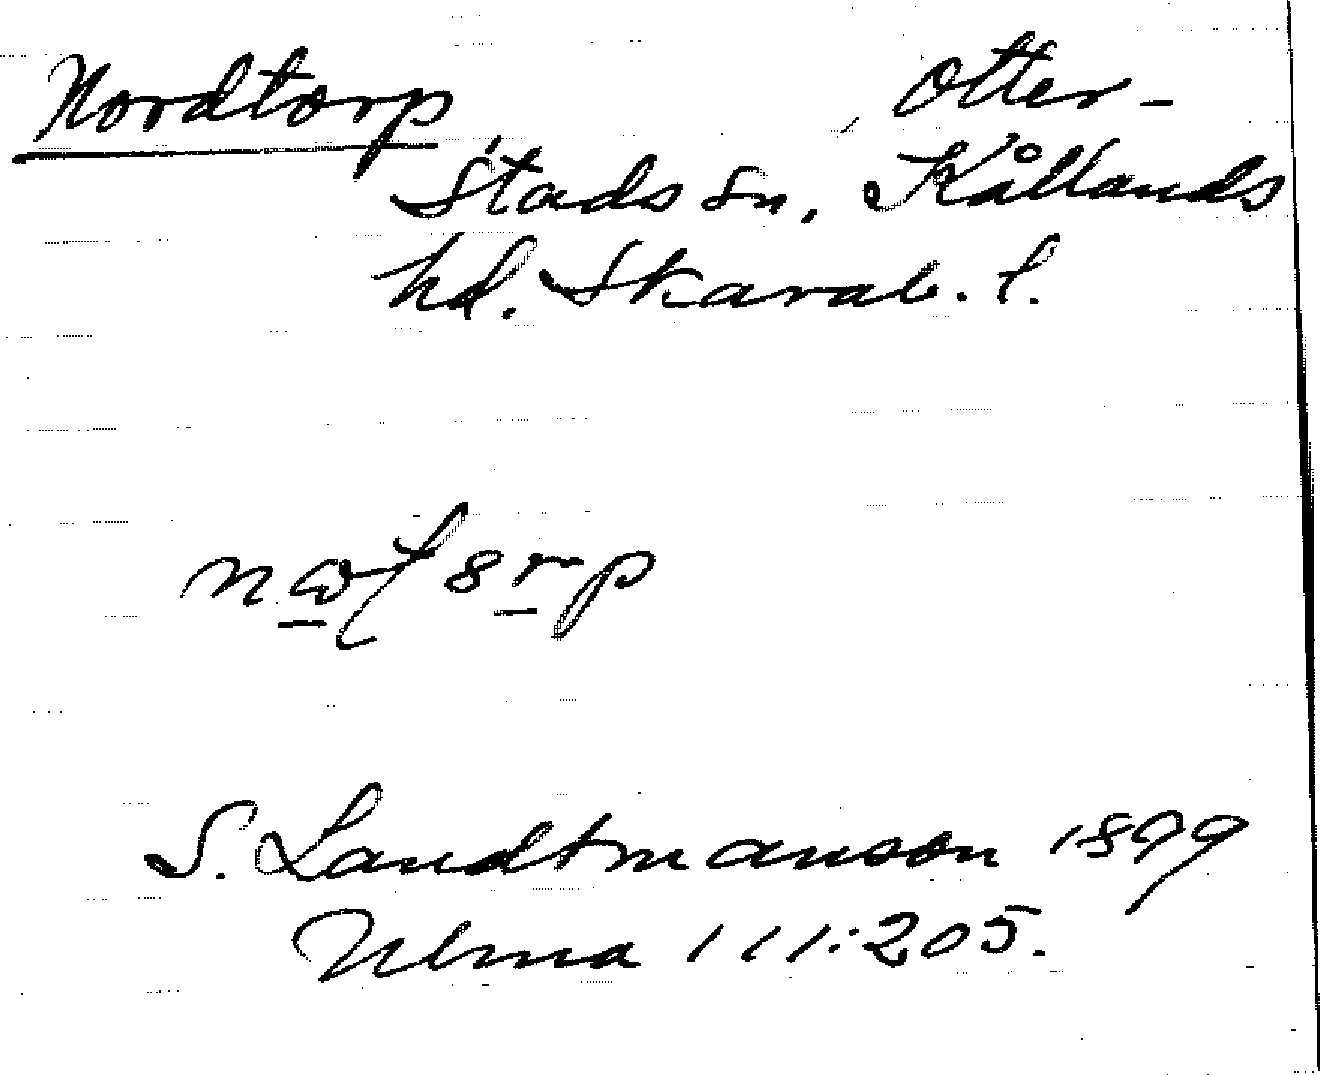 Nordtorp Otter-
stads sn, Kållands
hd. Skarab. l.
S. Landtmanson 1899
Ulma 111:205.